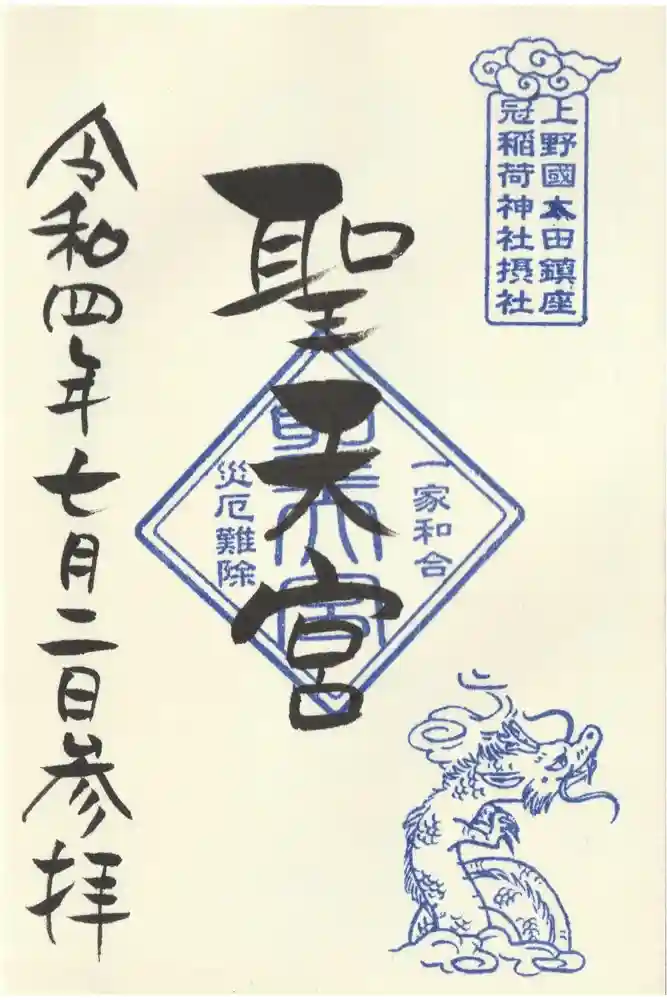 上野國太田鎮座
冠稲荷神社摂社
一家和合
聖天宮
聖天宮
災厄難除
令和四年七月二日参拝